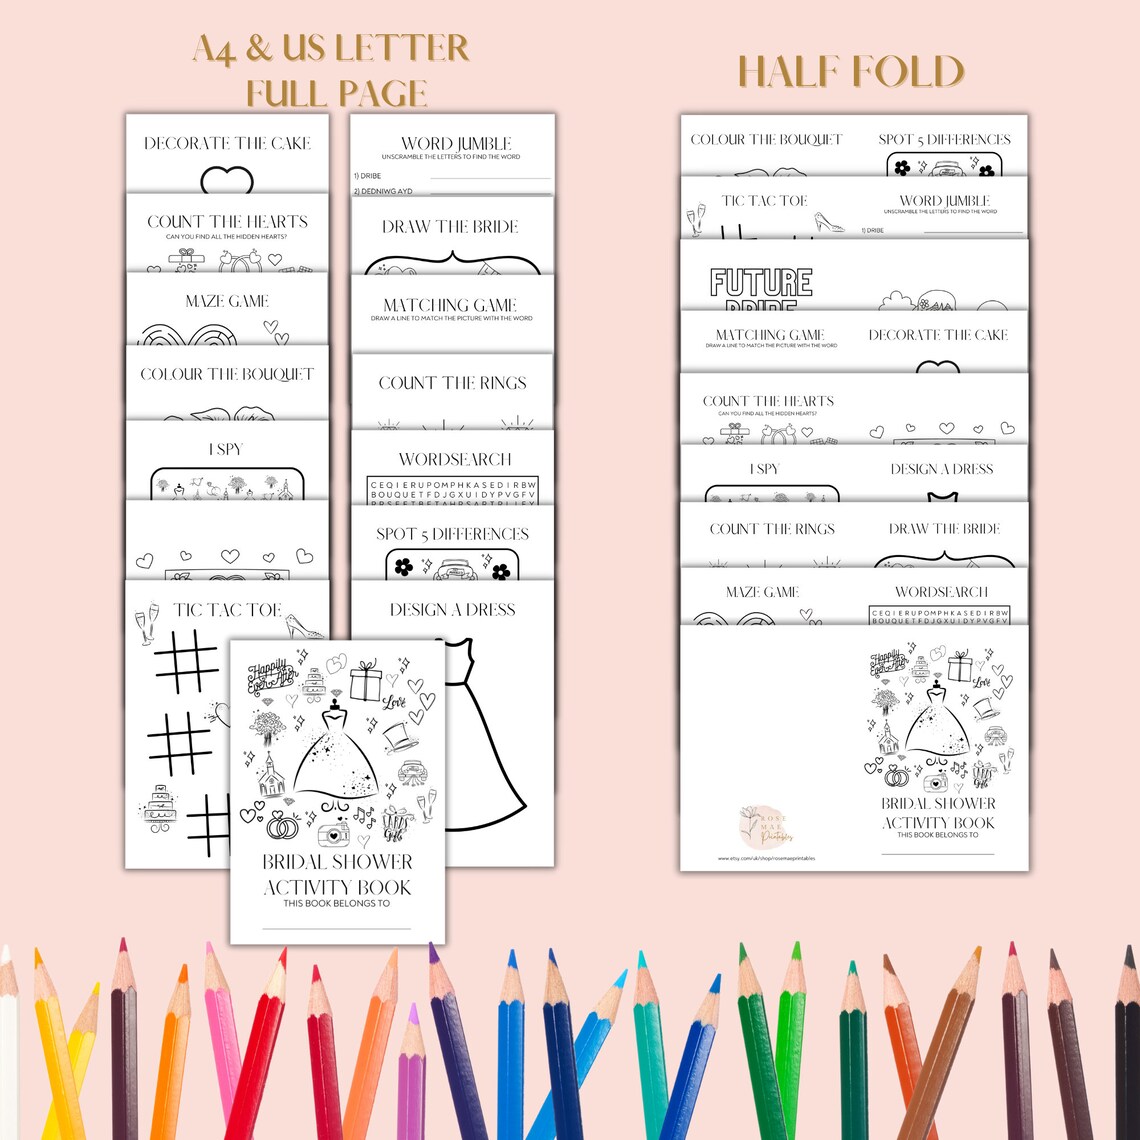 A4 & US LETTER
FULL PAGE
DECORATE THE CAKE
COUNT THE HEARTS
CAN YOU FIND ALL THE HIDDEN HEARTS?
MAZE GAME
COLOUR THE BOUQUET
I SPY
TIC TAC TOE
WORD JUMBLE
UNSCRAMBLE THE LETTERS TO FIND THE WORD
1) DRIBE
2) DEDNIWG AYD
DRAW THE BRIDE
MATCHING GAME
DRAW A LINE TO MATCH THE PICTURE WITH THE WORD
COUNT THE RINGS
WORDSEARCH
CEQIERUPOMPHKASEDIRBW
BOUQUETFDJGXUIDYPVGFV
SPOT 5 DIFFERENCES
DESIGN A DRESS
Happily
Ever After
Love
CARDS
& Gifts
BRIDAL SHOWER
ACTIVITY BOOK
THIS BOOK BELONGS TO
HALF FOLD
COLOUR THE BOUQUET
SPOT 5 DIFFERENCES
TIC TAC TOE
WORD JUMBLE
UNSCRAMBLE THE LETTERS TO FIND THE WORD
1) DRIBE
FUTURE
BRIDE
MATCHING GAME
DRAW A LINE TO MATCH THE PICTURE WITH THE WORD
DECORATE THE CAKE
COUNT THE HEARTS
CAN YOU FIND ALL THE HIDDEN HEARTS?
I SPY
DESIGN A DRESS
COUNT THE RINGS
DRAW THE BRIDE
MAZE GAME
WORDSEARCH
CEQIERUPOMPHKASEDIRBW
BOUQUETFDJGXUIDYPVGFV
Happily
Ever After
Love
CARDS
& Gifts
BRIDAL SHOWER
ACTIVITY BOOK
THIS BOOK BELONGS TO
ROSE
MAE
Printables
www.etsy.com/uk/shop/rosemaeprintables